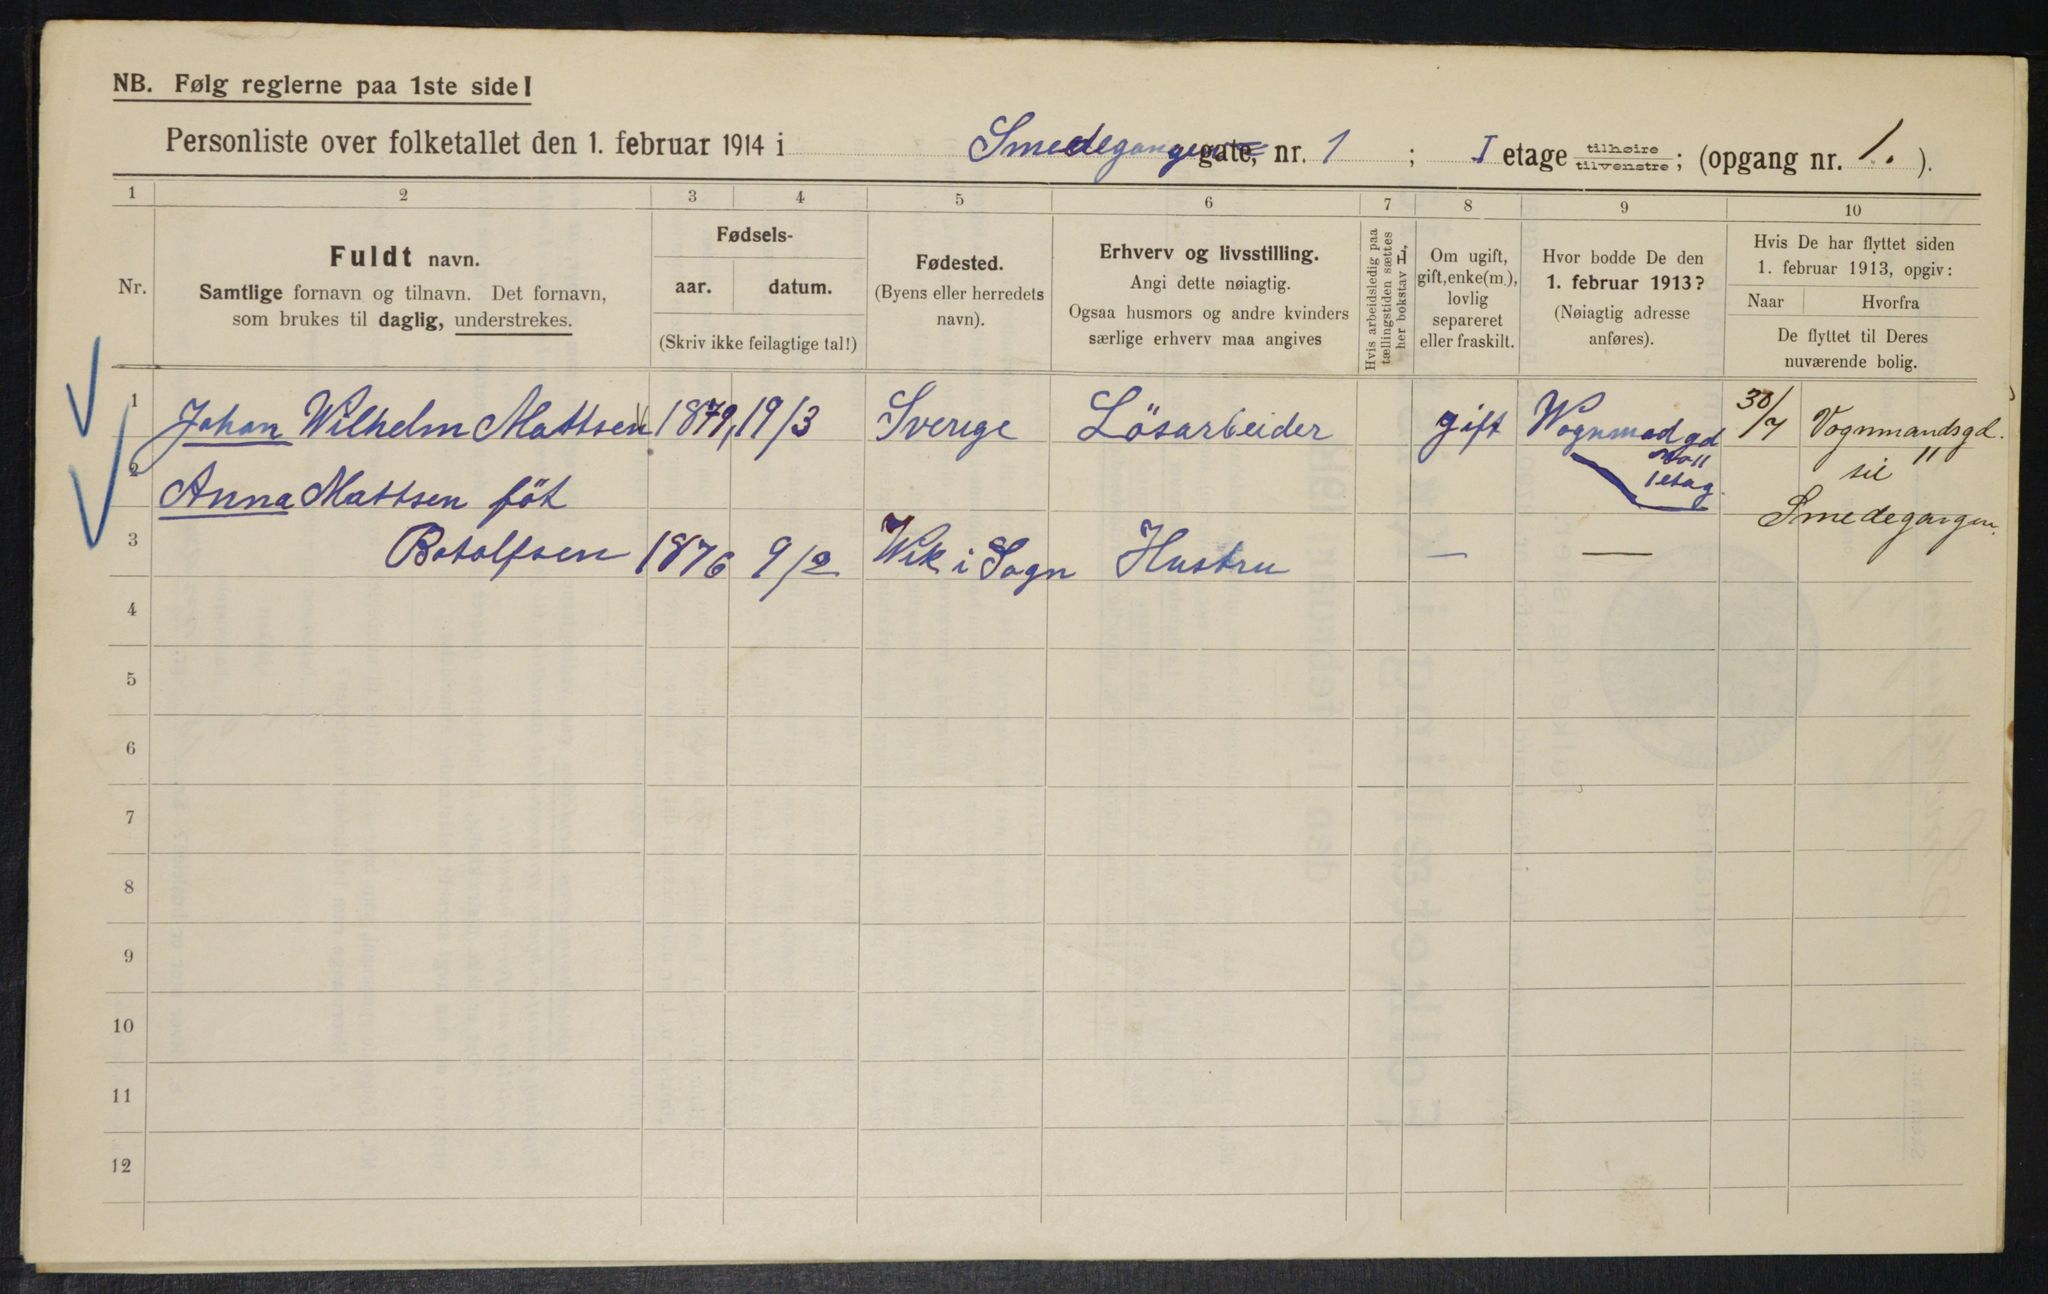 NB. Følg reglerne paa 1ste side!
Personliste over folketallet den 1. februar 1914 i Smedegangen gate, nr. 1 ; I etage tilhøire tilvenstre ; (opgang nr. 1. ).
1 2 3 4 5 6 7 8 9 10
Nr.
Fuldt navn.
Samtlige fornavn og tilnavn. Det fornavn,
som brukes til daglig, understrekes.
Fødsels-
aar. datum.
(Skriv ikke feilagtige tal!)
Fødested.
(Byens eller herredets
navn).
Erhverv og livsstilling.
Angi dette nøiagtig.
Ogsaa husmors og andre kvinders
særlige erhverv maa angives
Hvis arbeidsledig paa
tællingstiden sættes
her bokstav L,
Om ugift,
gift, enke(m.),
lovlig
separeret
eller fraskilt.
Hvor bodde De den
1. februar 1913?
(Nøiagtig adresse
anføres).
Hvis De har flyttet siden
1. februar 1913, opgiv:
Naar Hvorfra
De flyttet til Deres
nuværende bolig.
1 Johan Wilhelm Mattsen 1879, 19/3 Sverige Lösarbeider gift Wognmad gd 30/7 Vognmandsgd.
11
1 etag.
11
til
Smedegangen.
2 Anna Mattsen föt
3 Botolfsen 1876 9/2 Wik i Sogn Hustru — —
4
5
6
7
8
9
10
11
12